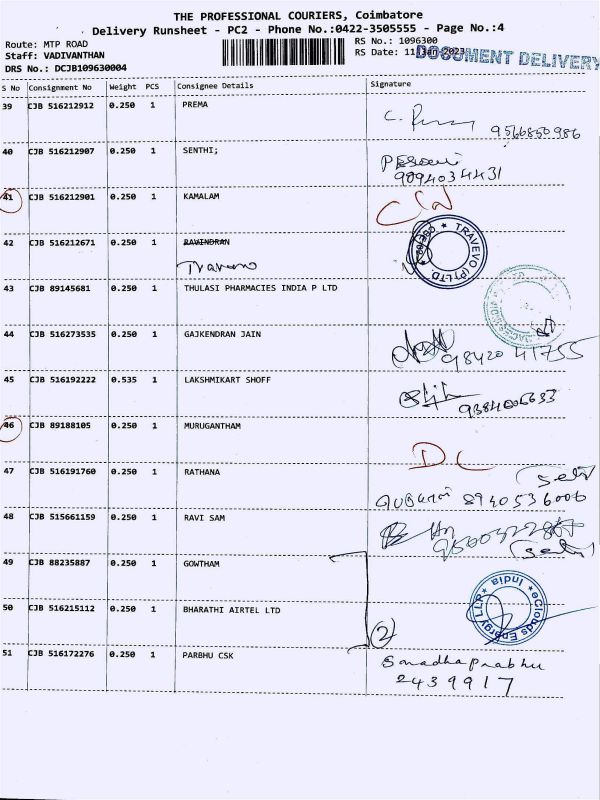 THE PROFESSIONAL COURIERS, Coimbatore
Delivery Runsheet - PC2 - Phone No.:0422-3505555 - Page No.:4
Route: MTP ROAD
RS No.: 1096300
Staff: VADIVANTHAN
RS Date: 11-Jan-2023
DOCUMENT DELIVERY
DRS No.: DCJB109630004
S No Consignment No Weight PCS Consignee Details Signature
39 CJB 516212912 0.250 1 PREMA
9566850986
40 CJB 516212907 0.250 1 SENTHI;
9894034431
41 CJB 516212901 0.250 1 KAMALAM
42 CJB 516212671 0.250 1 RAVINDRAN
TRAVEVO (P) LTD.
43 CJB 89145681 0.250 1 THULASI PHARMACIES INDIA P LTD
44 CJB 516273535 0.250 1 GAJKENDRAN JAIN
98420 41755
45 CJB 516192222 0.535 1 LAKSHMIKART SHOFF
46 CJB 89188105 0.250 1 MURUGANTHAM
DL
47 CJB 516191760 0.250 1 RATHANA
8940536006
48 CJB 515661159 0.250 1 RAVI SAM
49 CJB 88235887 0.250 1 GOWTHAM
eClouds Energy LLP India
50 CJB 516215112 0.250 1 BHARATHI AIRTEL LTD
2
51 CJB 516172276 0.250 1 PARBHU CSK
2439917